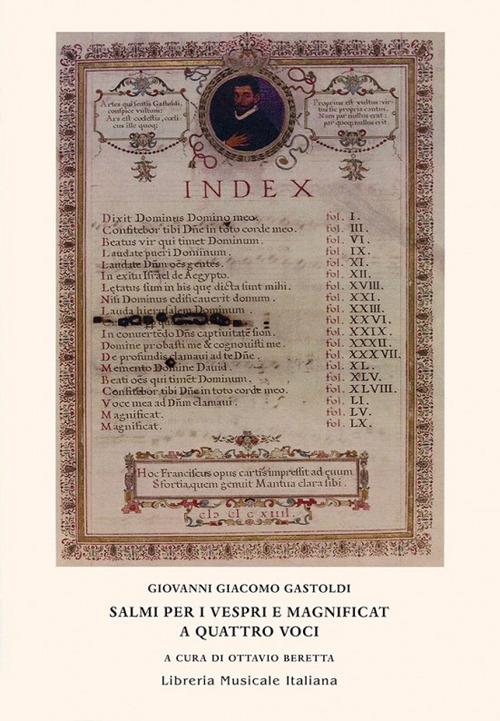 Artes qui sentis Gastoldi,
conspice vultum:
Ars est cœlestis, cœli
cus ille quoq;
Proprius est vultus: vir
tutis propria cantus.
Nam par nullus erat:
par quoq; nullus erit.
INDEX
Dixit Dominus Domino meo. fol. I.
Confitebor tibi Dñe in toto corde meo. fol. III.
Beatus vir qui timet Dominum. fol. VI.
Laudate pueri Dominum. fol. IX.
Laudate Dñm oẽs gentes. fol. XI.
In exitu Israel de Aegypto. fol. XII.
Lętatus sum in his quę dicta sunt mihi. fol. XVIII.
Nisi Dominus edificauerit domum. fol. XXI.
Lauda hierusalem Dominum. fol. XXIII.
fol. XXVI.
In conuertẽdo Dñs captiuitatẽ sion. fol. XXIX.
Domine probasti me & cognouisti me. fol. XXXII.
De profundis clamaui ad te Dñe. fol. XXXVII.
Memento Domine Dauid. fol. XL.
Beati oẽs qui timẽt Dominum. fol. XLV.
Confitebor tibi Dñe in toto corde meo. fol. XLVIII.
Voce mea ad Dñm clamaui. fol. LI.
Magnificat. fol. LV.
Magnificat. fol. LX.
Hoc Franciscus opus cartis impressit ad çuum
Sfortia, quem genuit Mantua clara sibi.
GIOVANNI GIACOMO GASTOLDI
SALMI PER I VESPRI E MAGNIFICAT
A QUATTRO VOCI
A CURA DI OTTAVIO BERETTA
Libreria Musicale Italiana